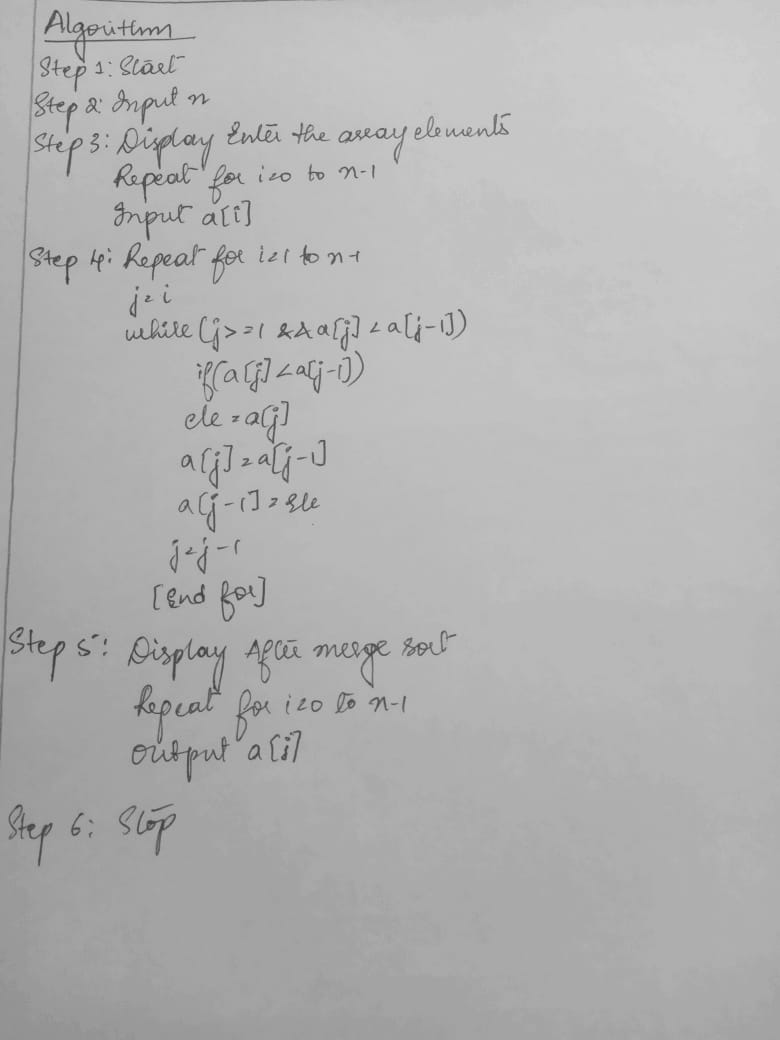 Algorithm
Step 1: Start
Step 2: Input n
Step 3: Display Enter the array elements
Repeat for i=0 to n-1
Input a[i]
Step 4: Repeat for i=1 to n-1
j=i
while(j>=1 && a[j]<a[j-1])
if(a[j]<a[j-1])
ele=a[j]
a[j]=a[j-1]
a[j-1]=ele
j=j-1
[End for]
Step 5: Display After merge sort
Repeat for i=0 to n-1
output a[i]
Step 6: Stop